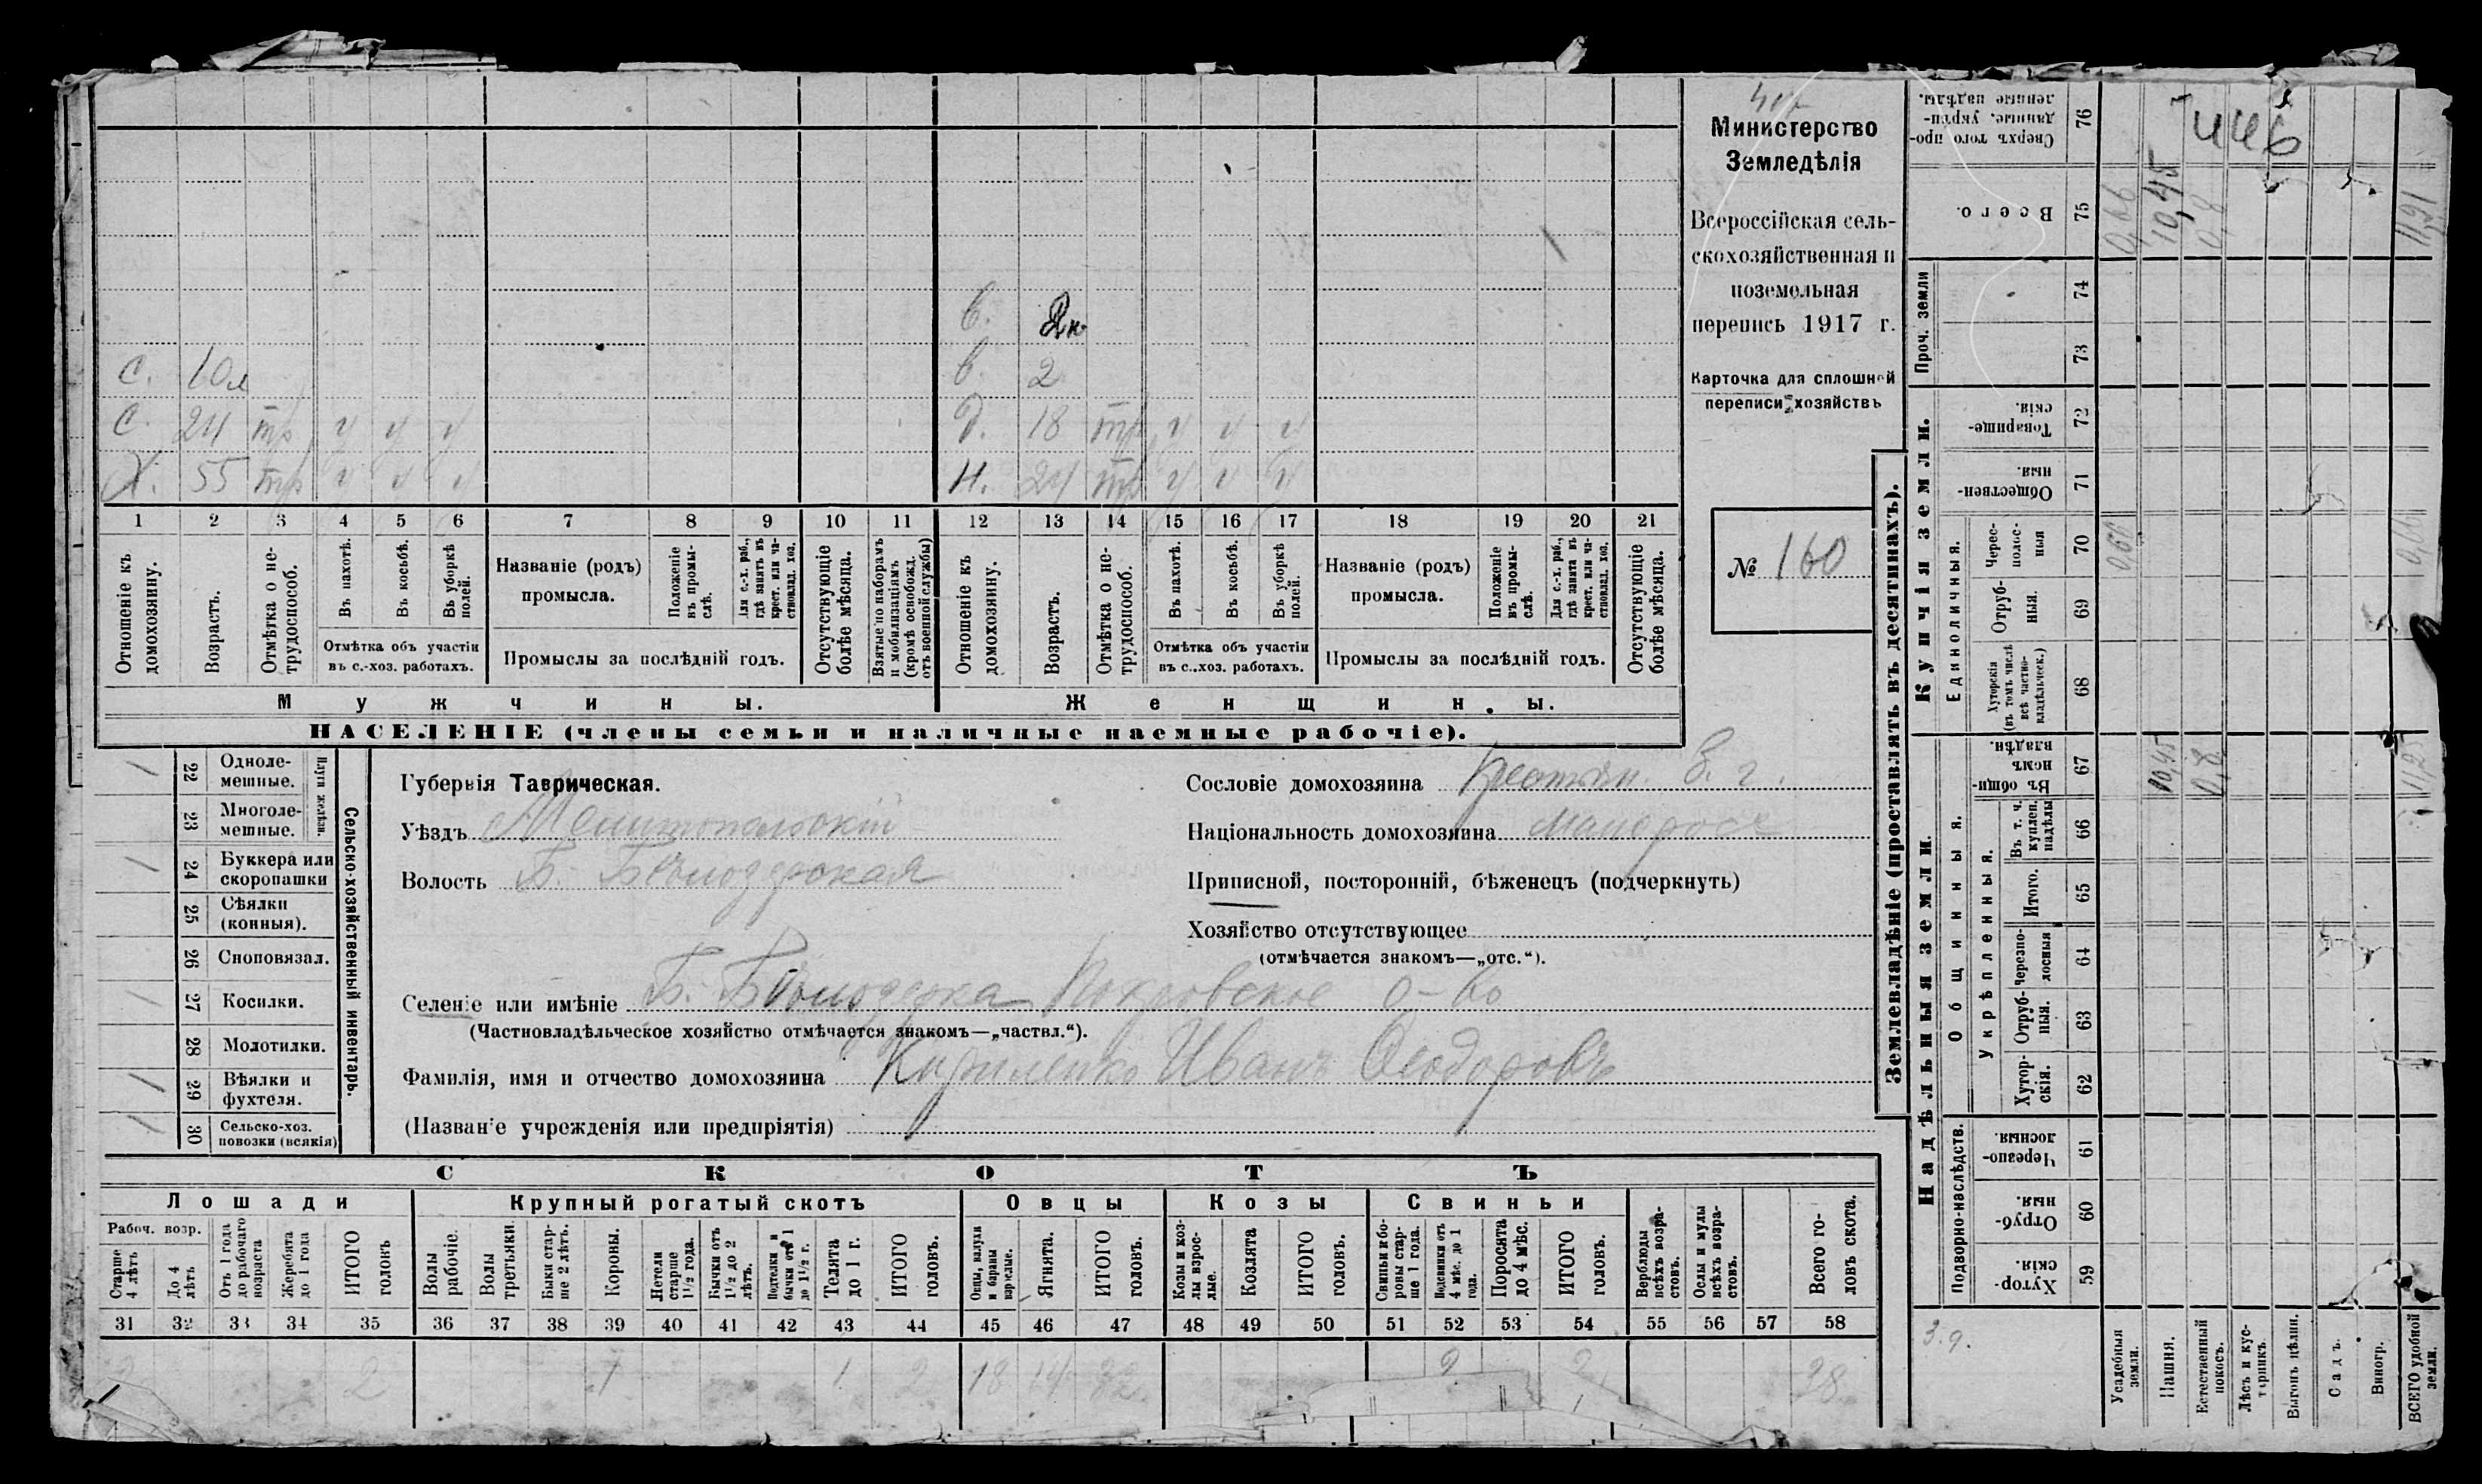 446
Министерство
Земледѣлія
Всероссійская сель-
скохозяйственная и
поземельная
перепись 1917 г.
Карточка для сплошной
переписи хозяйствъ
№ 160
В. 2 н
В. 2
С. 10 л
С. 24 тр ч ч ч
Д. 18 тр ч ч ч
Х. 55 тр ч ч ч
Н. 24 тр ч ч ч
1 2 3 4 5 6 7 8 9 10 11 12 13 14 15 16 17 18 19 20 21
Отношеніе къ домохозяину.
Возрастъ.
Отмѣтка о не-трудоспособ.
Въ пахотѣ.
Въ косьбѣ.
Въ уборкѣ полей.
Отмѣтка объ участіи
въ с.-хоз. работахъ.
Названіе (родъ)
промысла.
Положеніе въ промы-слѣ.
Для с.-х. раб., гдѣ занятъ въ крест. или ча-стновлад. хоз.
Промыслы за послѣдній годъ.
Отсутствующіе болѣе мѣсяца.
Взятые по наборамъ и мобилизаціямъ (кромѣ освобожд. отъ военной службы)
Отношеніе къ домохозяину.
Возрастъ.
Отмѣтка о не-трудоспособ.
Въ пахотѣ.
Въ косьбѣ.
Въ уборкѣ полей.
Отмѣтка объ участіи
въ с.-хоз. работахъ.
Названіе (родъ)
промысла.
Положеніе въ промы-слѣ.
Для с.-х. раб., гдѣ занята въ крест. или ча-стновлад. хоз.
Промыслы за послѣдній годъ.
Отсутствующіе болѣе мѣсяца.
Мужчины.
Женщины.
НАСЕЛЕНІЕ (члены семьи и наличные наемные рабочіе).
Сельско-хозяйственный инвентарь.
Плуги желѣзн.
/ 22 Одноле-мешные.
23 Многоле-мешные.
/ 24 Буккера или скоропашки
25 Сѣялки (конныя).
26 Сноповязал.
/ 27 Косилки.
28 Молотилки.
/ 29 Вѣялки и фухтеля.
/ 30 Сельско-хоз. повозки (всякія)
Губернія Таврическая.
Уѣздъ Мелитопольскій
Волость Б. Бѣлозерская
Селеніе или имѣніе Б. Бѣлозерка Покровское о-во
(Частновладѣльческое хозяйство отмѣчается знакомъ—„частвл.“).
Фамилія, имя и отчество домохозяина Кириленко Иванъ Ѳеодоровъ
(Названіе учрежденія или предпріятія)
Сословіе домохозяина Крестьян.
Національность домохозяина малоросъ
Приписной, посторонній, бѣженецъ (подчеркнуть)
Хозяйство отсутствующее
(отмѣчается знакомъ—„отс.“).
СКОТЪ
Лошади
Крупный рогатый скотъ
Овцы
Козы
Свиньи
Рабоч. возр.
Старше 4 лѣтъ
До 4 лѣтъ
Отъ 1 года до рабочаго возраста
Жеребята до 1 года
ИТОГО головъ
Волы рабочіе.
Волы третьяки
Быки стар-ше 2 лѣтъ.
Коровы.
Нетели старше 1 1/2 года.
Бычки отъ 1 1/2 до 2 лѣтъ.
Подтелки и бычки отъ 1 до 1 1/2 г.
Телята до 1 г.
ИТОГО головъ.
Овцы, валухи и бараны взрослые.
Ягнята.
ИТОГО головъ.
Козы и коз-лы взрос-лые.
Козлята
ИТОГО головъ.
Свиньи и бо-ровы стар-ше 1 года.
Подсвинки отъ 4 мѣс. до 1 года.
Поросята до 4 мѣс.
ИТОГО головъ.
Верблюды всѣхъ возра-стовъ.
Ослы и мулы всѣхъ возра-стовъ.
Всего го-ловъ скота.
31 32 33 34 35 36 37 38 39 40 41 42 43 44 45 46 47 48 49 50 51 52 53 54 55 56 57 58
2 2 1 1 2 18 14 32 2 2 38
Землевладѣніе (проставлять въ десятинахъ).
Надѣльныя земли.
Купчія земли.
Проч. земли
Подворно-наслѣдств.
Общинныя.
Укрѣпленныя.
Единоличныя.
59 Хутор-скія.
60 Отруб-ныя.
61 Черезпо-лосныя.
62 Хутор-скія.
63 Отруб-ныя.
64 Черезпо-лосныя
65 Итого.
66 Въ т. ч. куплен. надѣлы
67 Въ общи-номъ владѣн.
68 Хуторскія (въ томъ числѣ всѣ частно-владѣльческ.)
69 Отруб-ныя.
70 Черес-полос-ныя
71 Обществен-ныя.
72 Товарище-скія.
73
74
75 Всего.
76 Сверхъ того про-данные, укрѣп-ленные надѣлы.
З.д.
Усадебныя земли. 0,66 0,66
Пашня. 10,45 10,45
Естественный покосъ. 0,8 0,8
Лѣсъ и кус-тарникъ.
Выгонъ цѣлин.
Садъ.
Виногр.
ВСЕГО удобной земли. 11,25 0,66 11,91